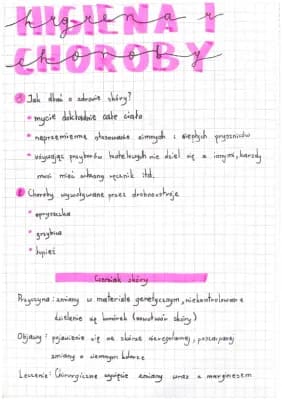 HIGIENA I
higiena i
CHOROBY
choroby
Jak dbać o zdrowie skóry?
• mycie dokładnie całe ciało
• naprzemienne stosowanie zimnych i ciepłych pryszniców
• używając przyborów toaletowych nie dziel się z innymi, każdy
musi mieć własny ręcznik itd.
Choroby wywoływane przez drobnoustroje
• opryszczka
• grzybica
• łupież
Czerniak skóry
Przyczyna: zmiany w materiale genetycznym, niekontrolowane
dzielenie się komórek (nowotwór skóry)
Objawy: pojawienie się na skórze nieregularnej, poszarpanej
zmiany o ciemnym kolorze
Leczenie: Chirurgiczne wycięcie zmiany wraz z marginesem